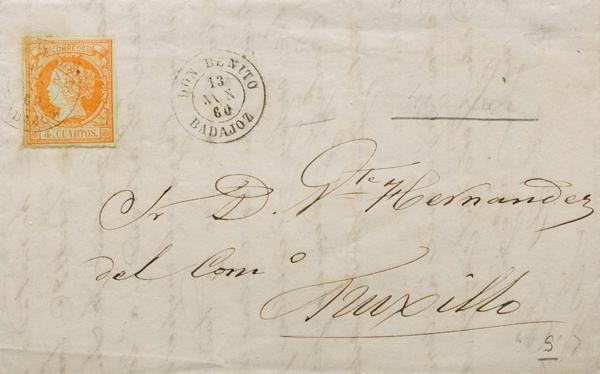 CORREOS
4 CUARTOS.
DON BENITO
13
JUN
60
BADAJOZ
Sr D. Vte Hernandez
del Como
Truxillo